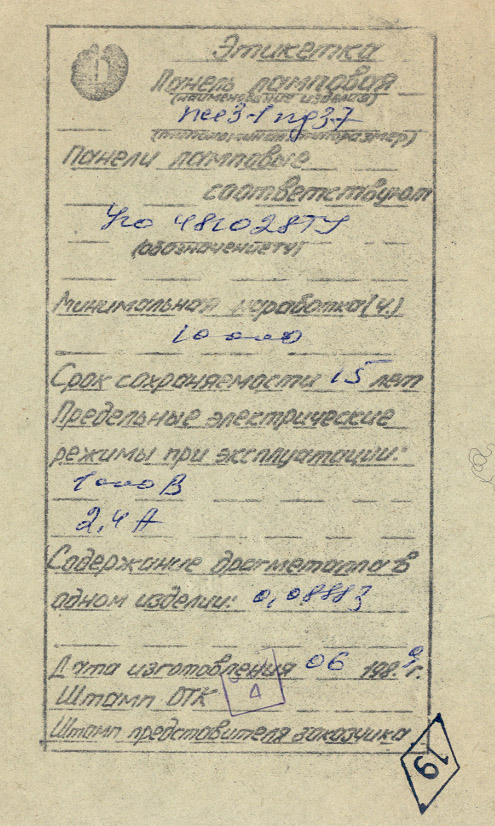 Этикетка
Панель ламповая
(наименование изделия)
(типономинал, типоразмер)
Панели ламповые
соответствуют
481028ТУ
(обозначение ТУ)
Минимальная наработка (ч.)
10000
Срок сохраняемости 15 лет
Предельные электрические
режимы при эксплуатации:
1000 В
2,4 А
Содержание драгметалла в
одном изделии:
Дата изготовления 06 1989 г.
Штамп ОТК
4
Штамп представителя заказчика
19